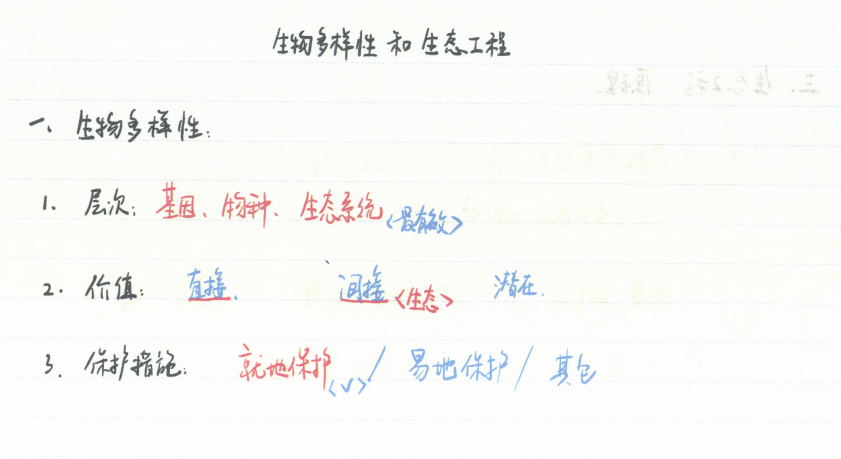 生物多样性 和 生态工程
一、生物多样性：
1. 层次：基因、物种、生态系统<最有效>
2. 价值：直接、 间接<生态> 潜在.
3. 保护措施：就地保护<√>/ 易地保护/ 其它